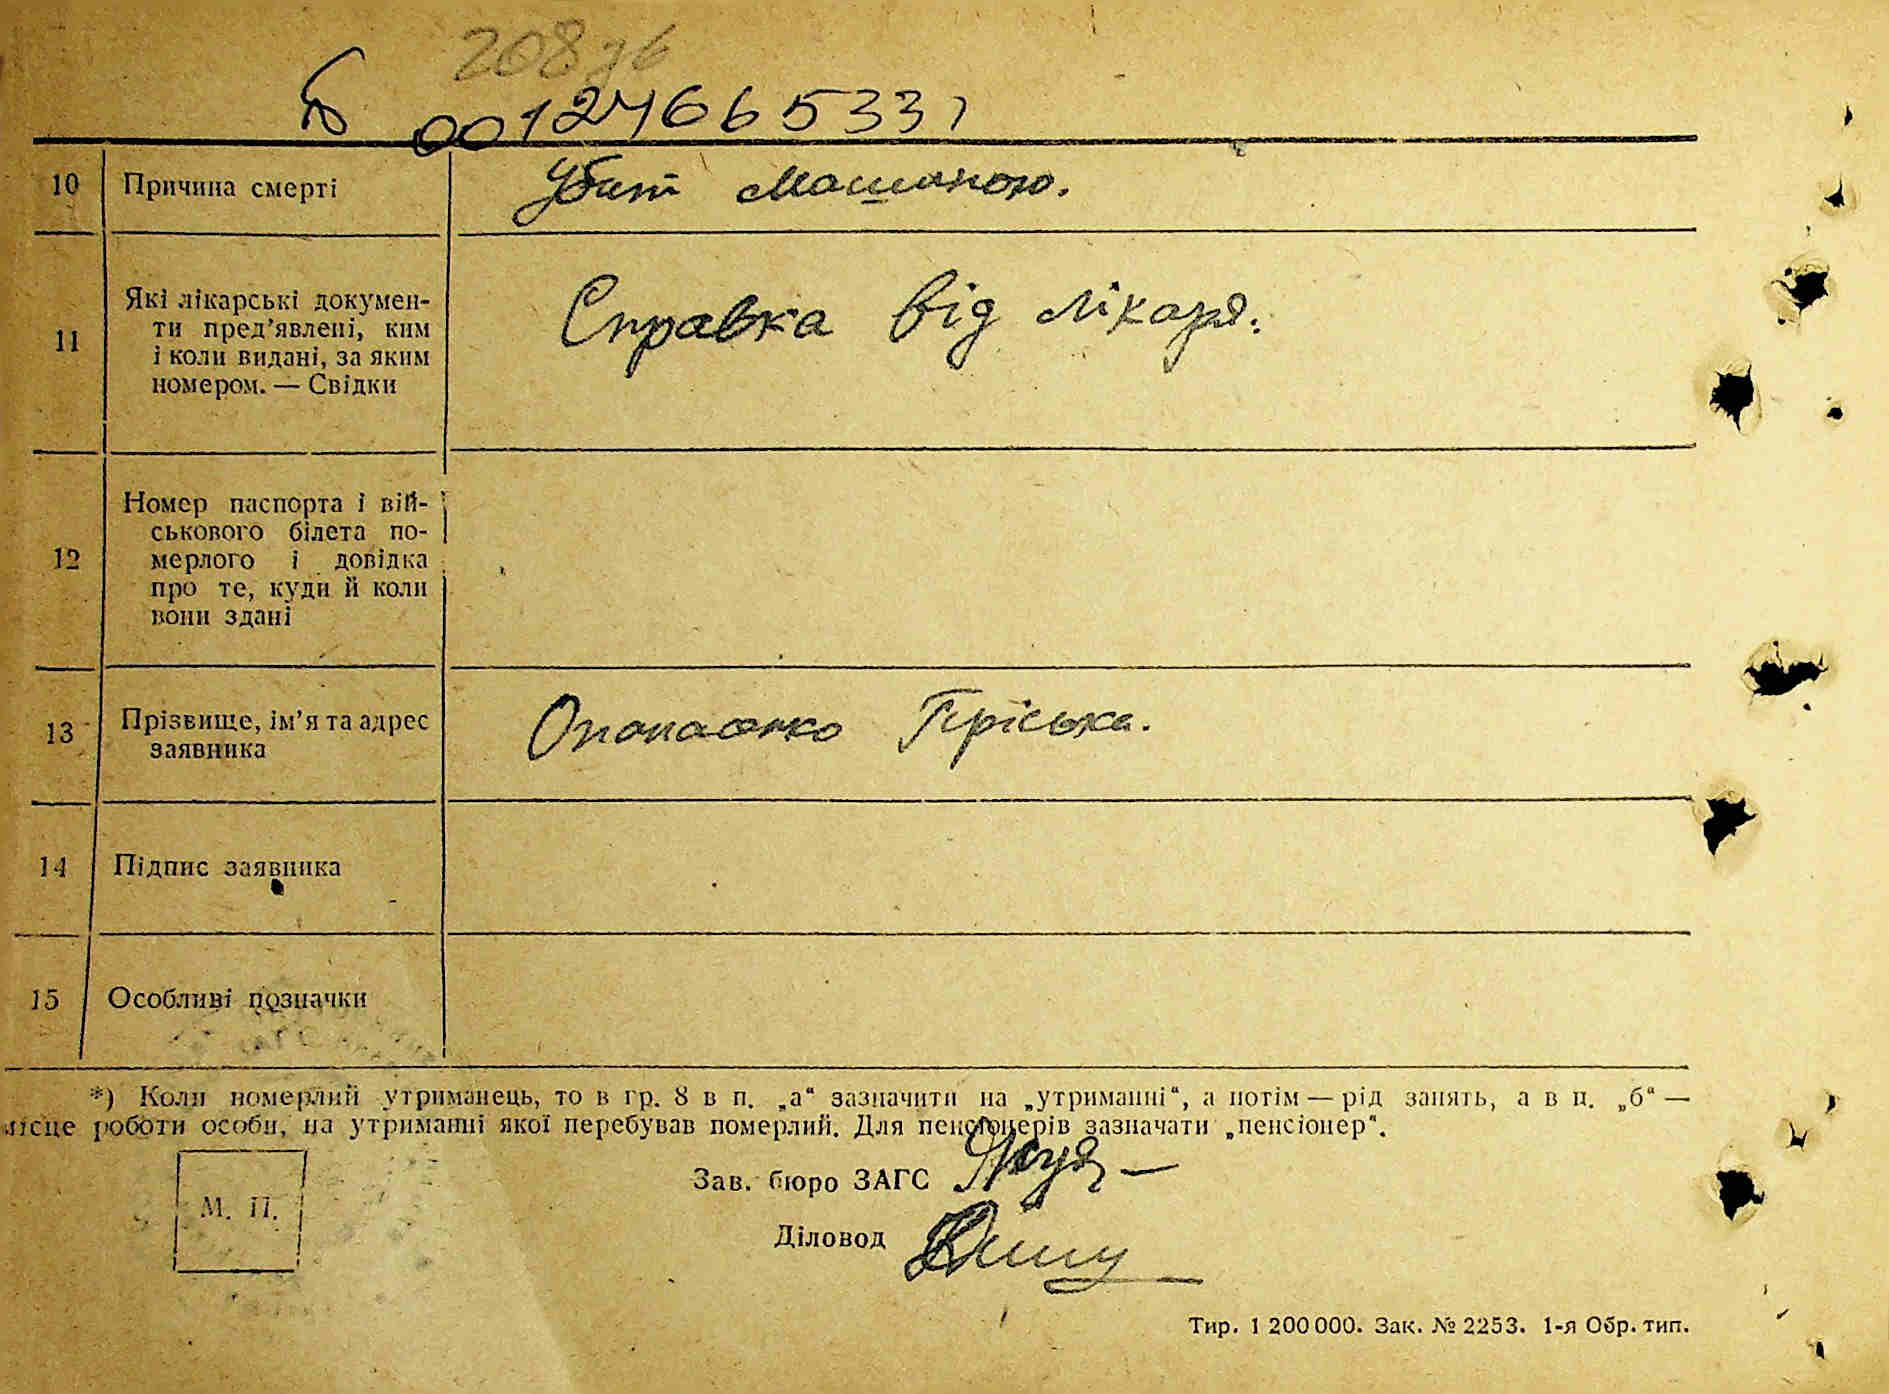 208 зв
00124665331
10 Причина смерті Убит машиною.
11 Які лікарські докумен-
ти пред’явлені, ким
і коли видані, за яким
номером. — Свідки
Справка від лікаря.
12 Номер паспорта і вій-
ськового білета по-
мерлого і довідка
про те, куди й коли
вони здані
13 Прізвище, ім’я та адрес
заявника
Опанасенко Пріська.
14 Підпис заявника
15 Особливі позначки
*) Коли померлий утриманець, то в гр. 8 в п. „а“ зазначити на „утриманні“, а потім — рід занять, а в п. „б“ —
місце роботи особи, на утриманні якої перебував померлий. Для пенсіонерів зазначати „пенсіонер“.
М. П.
Зав. бюро ЗАГС
Діловод
Тир. 1 200 000. Зак. № 2253. 1-я Обр. тип.